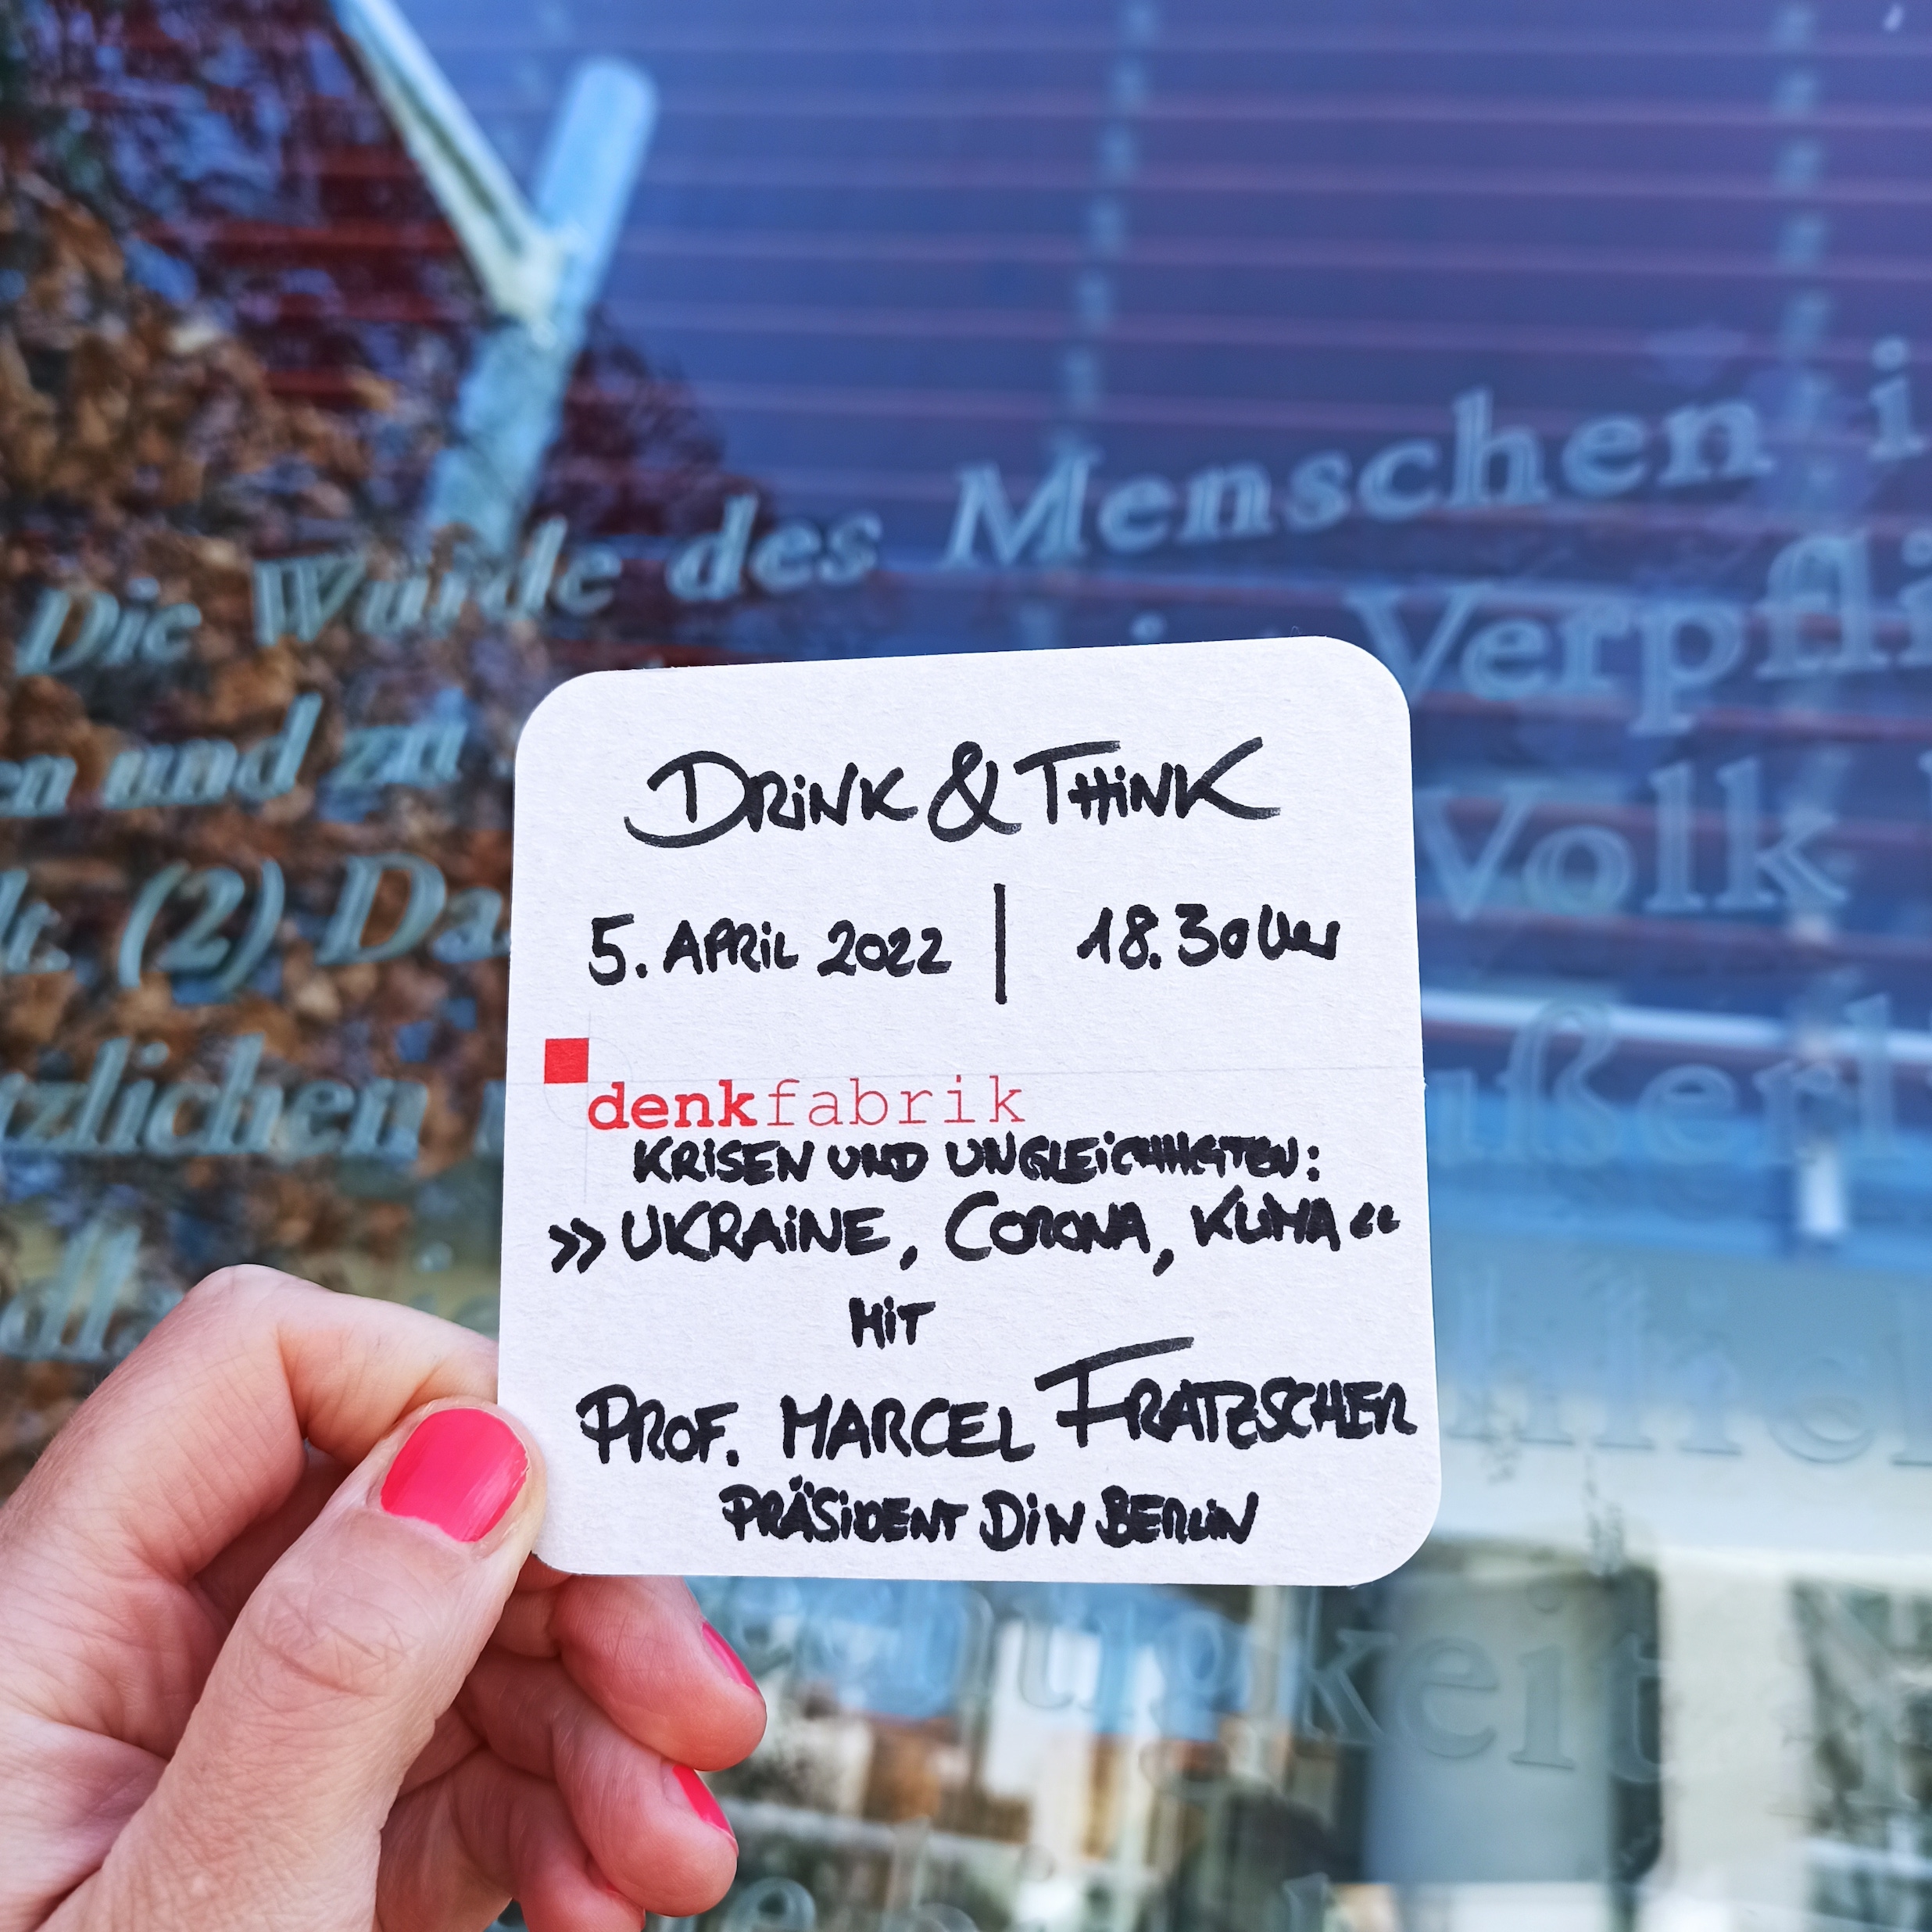 Die Würde des Menschen i
Verpfli
en und zu
Volk
lt. (2) Da
ußerl
tzlichen
keit
DRINK & THINK
5. APRIL 2022 | 18.30 Uhr
denkfabrik
KRISEN UND UNGLEICHHEITEN:
»UKRAINE, CORONA, KLIMA«
MIT
PROF. MARCEL FRATZSCHER
PRÄSIDENT DIW BERLIN